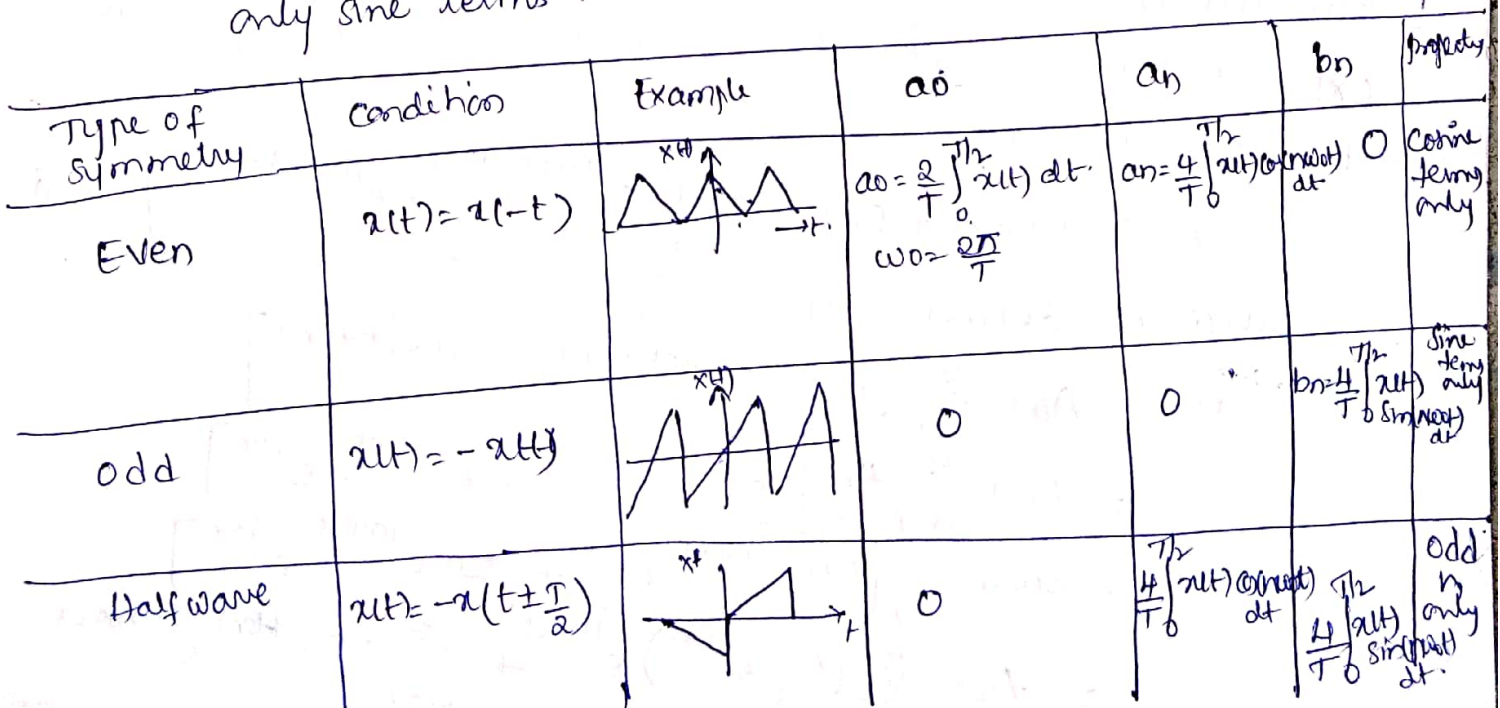 only sine
Type of symmetry | condition | Example | a0 | an | bn | property
Even | x(t) = x(-t) | x(t) →t. | a0 = 2/T ∫_0^{T/2} x(t) dt. ω0 = 2π/T | an = 4/T ∫_0^{T/2} x(t) cos(nω0t) dt | 0 | cosine terms only
odd | x(t) = -x(-t) | x(t) | 0 | 0 | bn = 4/T ∫_0^{T/2} x(t) sin(nω0t) dt | Sine terms only
Half wave | x(t) = -x(t ± T/2) | xt t | 0 | 4/T ∫_0^{T/2} x(t) cos(nω0t) dt | 4/T ∫_0^{T/2} x(t) sin(nω0t) dt. | odd n only